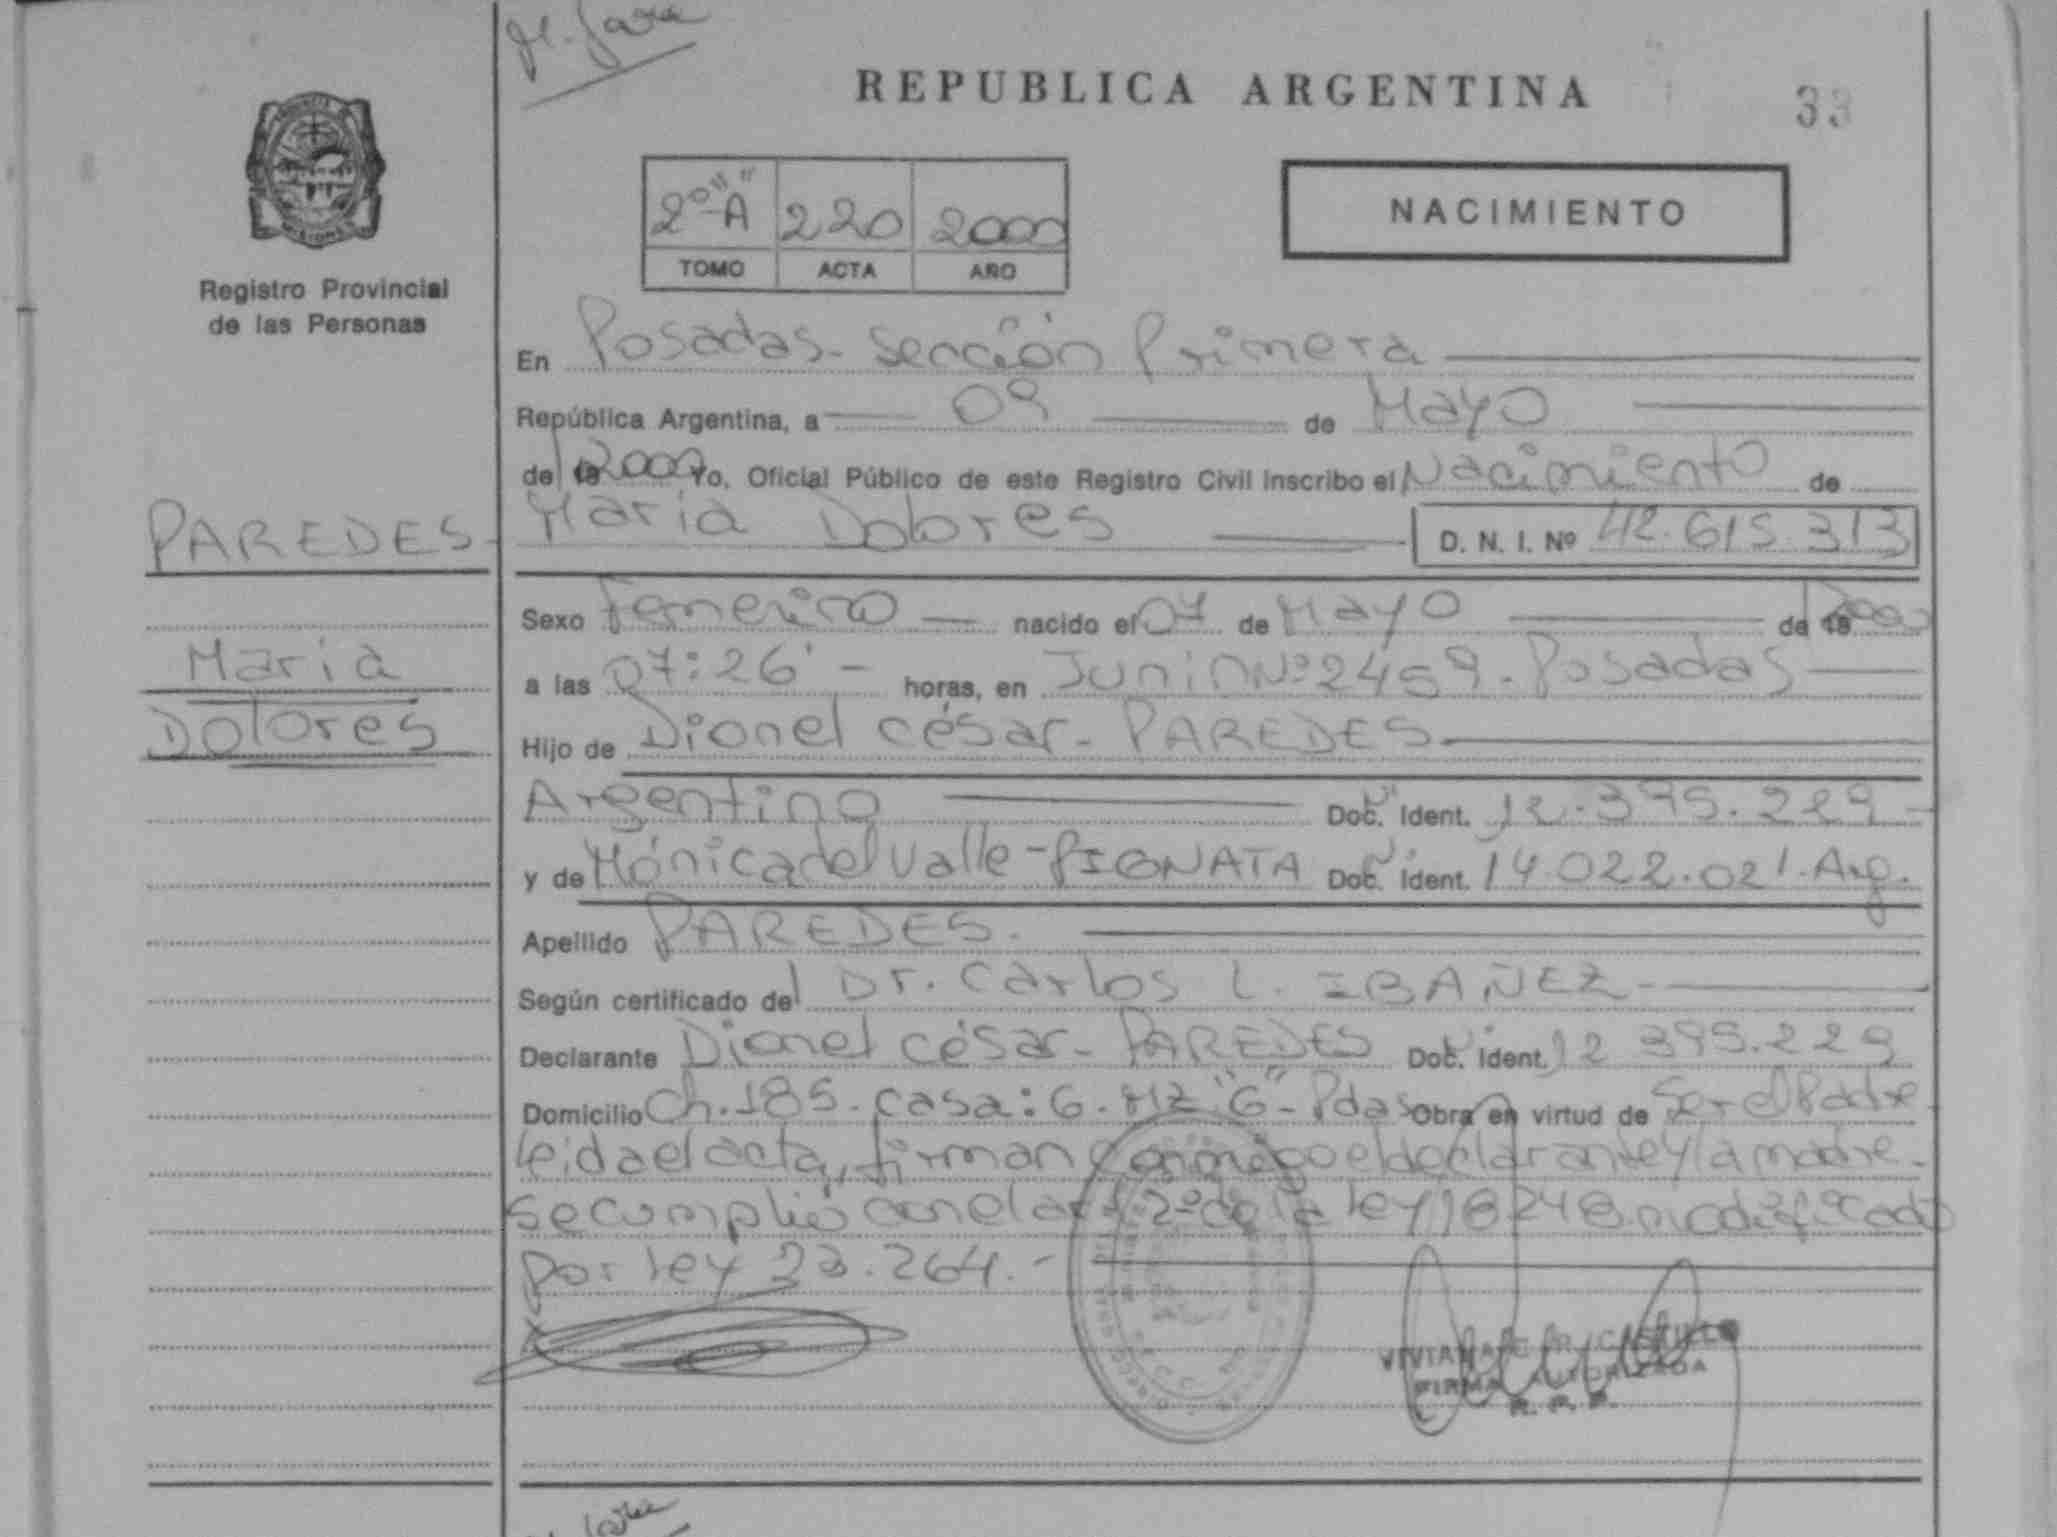 REPUBLICA ARGENTINA
33
Registro Provincial
de las Personas
2º "A" 220 2000
TOMO ACTA AÑO
NACIMIENTO
En Posadas - Sección Primera
República Argentina, a 09 de Mayo
de 2000 Yo, Oficial Público de este Registro Civil inscribo el Nacimiento de
PAREDES - María Dolores D. N. I. Nº 42.615.313
Sexo Femenino nacido el 07 de Mayo de 2000
María
a las 07:26' - horas, en Junín Nº 2459 - Posadas
Dolores
Hijo de Dionel César - PAREDES
Argentino Doc. Ident. 12.395.229 -
y de Mónica del Valle - PIGNATA Doc. Ident. 14.022.021. Arg.
Apellido PAREDES.
Según certificado del Dr. Carlos L. IBAÑEZ -
Declarante Dionel César - PAREDES Doc. Ident. 12 395.229
Domicilio Ch. 185. casa: 6. Mz "G" - Pdas Obra en virtud de Ser el Padre
leida el acta, firman conmigo el declarante y la madre -
se cumplió con el art 2º de la ley 18248 modificado
por ley 23.264. -
CASTILLO
FIRMA AUTORIZADA
R. P. P.